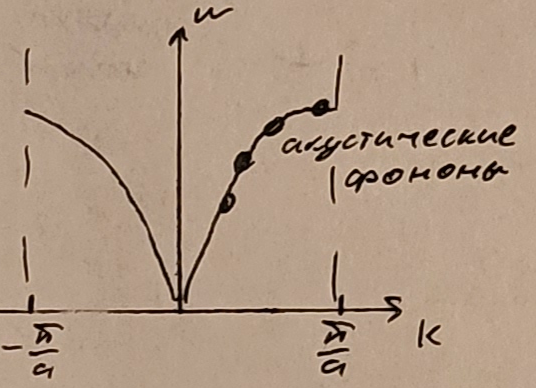 ω
акустические
фононы
-π/a
π/a
k